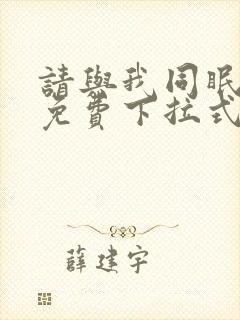 請與我同眠
免費下拉式
薛建宇